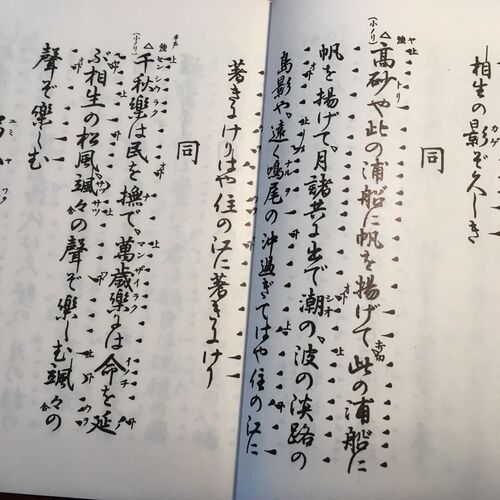 相生の影ぞ久しき
同
高砂や此の浦船に帆を揚げて此の浦船に
帆を揚げて、月諸共に出で潮の、波の淡路の
島影や、遠く鳴尾の沖過ぎてはや住の江に
著きにけりはや住の江に著きにけり
同
千秋樂は民を撫で、萬歳樂には命を延
ぶ相生の松風颯々の聲ぞ樂しむ颯々の
聲ぞ樂しむ